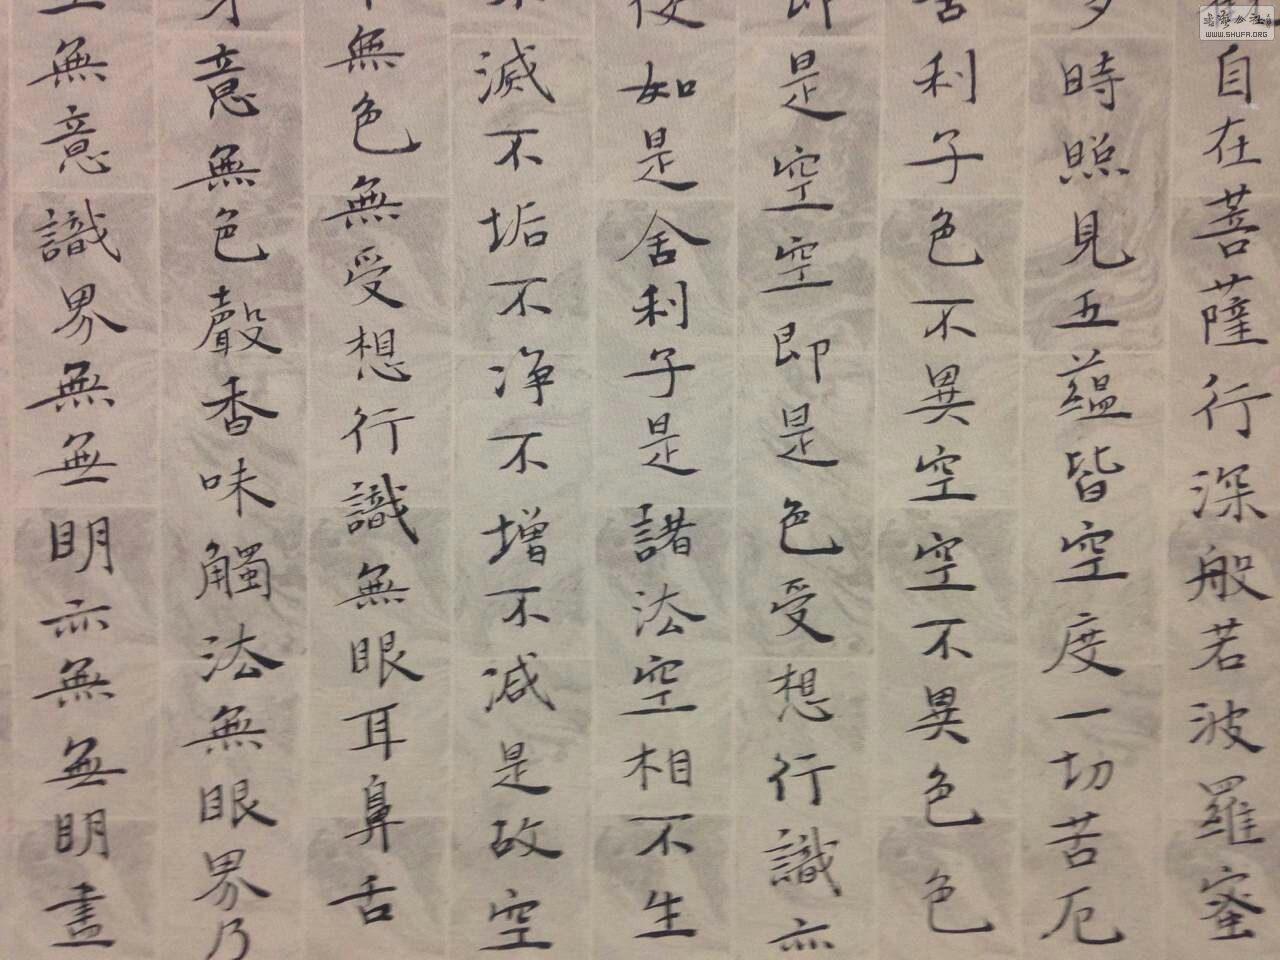 自在菩薩行深般若波羅蜜
多時照見五蘊皆空度一切苦厄
舍利子色不異空空不異色色
即是空空即是色受想行識亦
如是舍利子是諸法空相不生
滅不垢不净不增不減是故空
無色無受想行識無眼耳鼻舌
身意無色聲香味觸法無眼界乃
無意識界無無明亦無無明盡
WWW.SHUFA.ORG